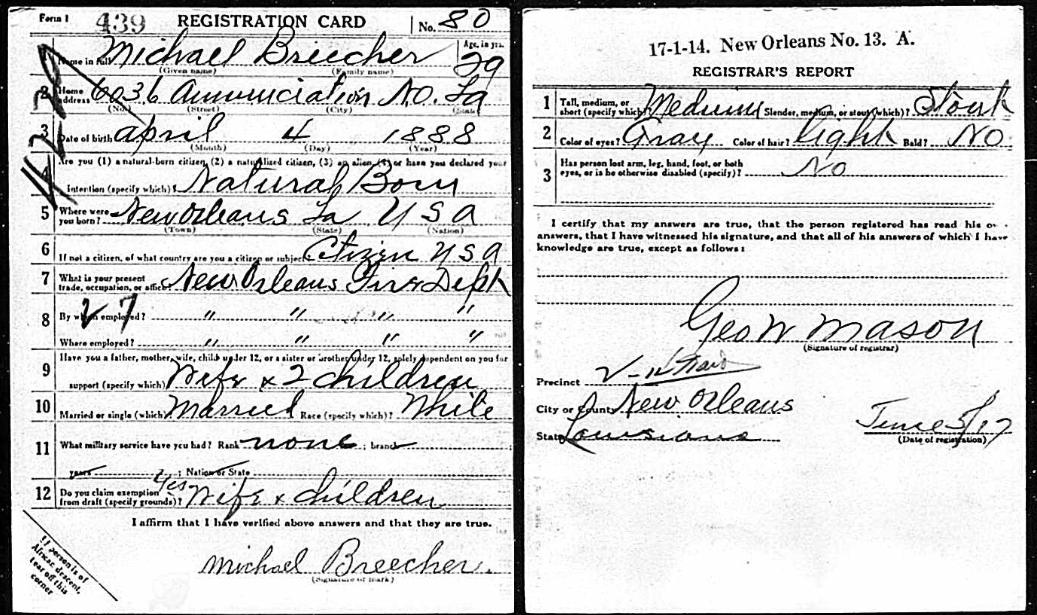 Form 1 439 REGISTRATION CARD No. 80
1 Name in full Michael Breecher Age, in yrs. 29
(Given name) (Family name)
2 Home address 6036 Annunciation N.O. La
(No.) (Street) (City) (State)
3 Date of birth april 4 1888
(Month) (Day) (Year)
Are you (1) a natural-born citizen, (2) a naturalized citizen, (3) an alien, (4) or have you declared your
4 intention (specify which)? Natural Born
5 Where were you born? New Orleans La U S A
(Town) (State) (Nation)
6 If not a citizen, of what country are you a citizen or subject? Citizen U S A
7 What is your present trade, occupation, or office? New Orleans Fire Dept
27
8 By whom employed? " " " "
Where employed? " " " "
9 Have you a father, mother, wife, child under 12, or a sister or brother under 12, solely dependent on you for
support (specify which)? Wife & 2 children
10 Married or single (which)? Married Race (specify which)? White
11 What military service have you had? Rank none ; branch
years ; Nation or State
12 Do you claim exemption from draft (specify grounds)? Yes Wife & children
I affirm that I have verified above answers and that they are true.
Michael Breecher.
(Signature or mark)
If person is of
African descent,
tear off this
corner
17-1-14. New Orleans No. 13. A.
REGISTRAR'S REPORT
1 Tall, medium, or short (specify which)? Medium Slender, medium, or stout (which)? Stout
2 Color of eyes? Gray Color of hair? Light Bald? No
3 Has person lost arm, leg, hand, foot, or both eyes, or is he otherwise disabled (specify)? No
I certify that my answers are true, that the person registered has read his own
answers, that I have witnessed his signature, and that all of his answers of which I have
knowledge are true, except as follows:
Geo W Mason
(Signature of registrar)
Precinct
City or County New Orleans
State Louisiana June 5/17
(Date of registration)